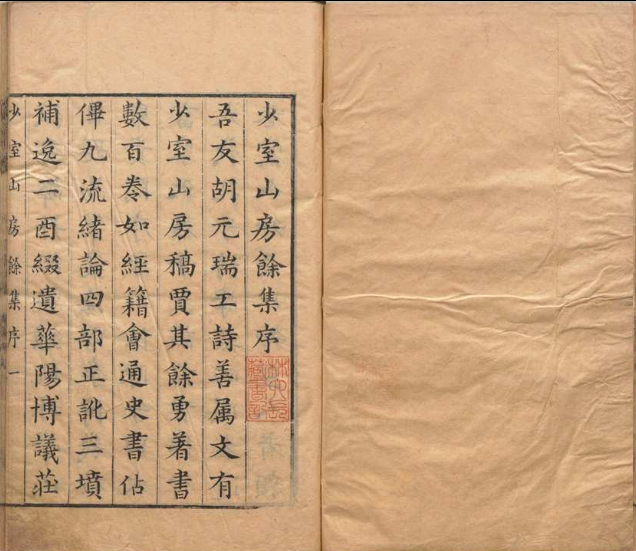 少室山房餘集序
吾友胡元瑞工詩善属文有
少室山房稿賈其餘勇著書
數百卷如經籍會通史書佔
㑮九流緒論四部正訛三墳
補逸二酉綴遺華陽博議莊
少室山房餘集序一